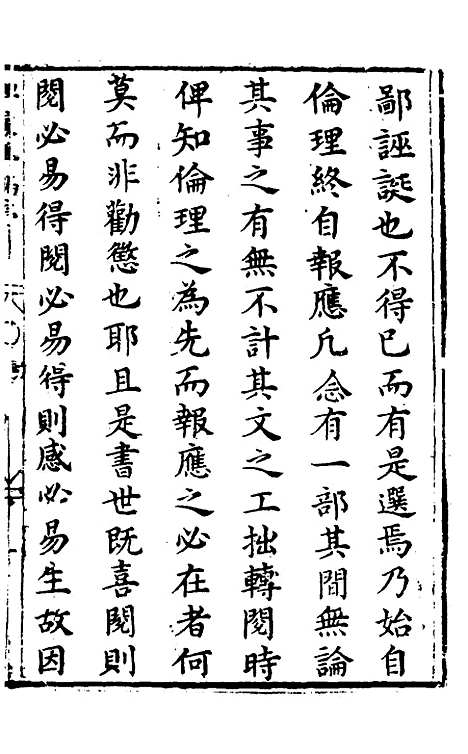 鄙誣誕也不得已而有是選焉乃始自
倫理終自報應凡念有一部其間無論
其事之有無不計其文之工拙轉閱時
俾知倫理之為先而報應之必在者何
莫而非勸懲也耶且是書世既喜閱則
閱必易得閱必易得則感必易生故因